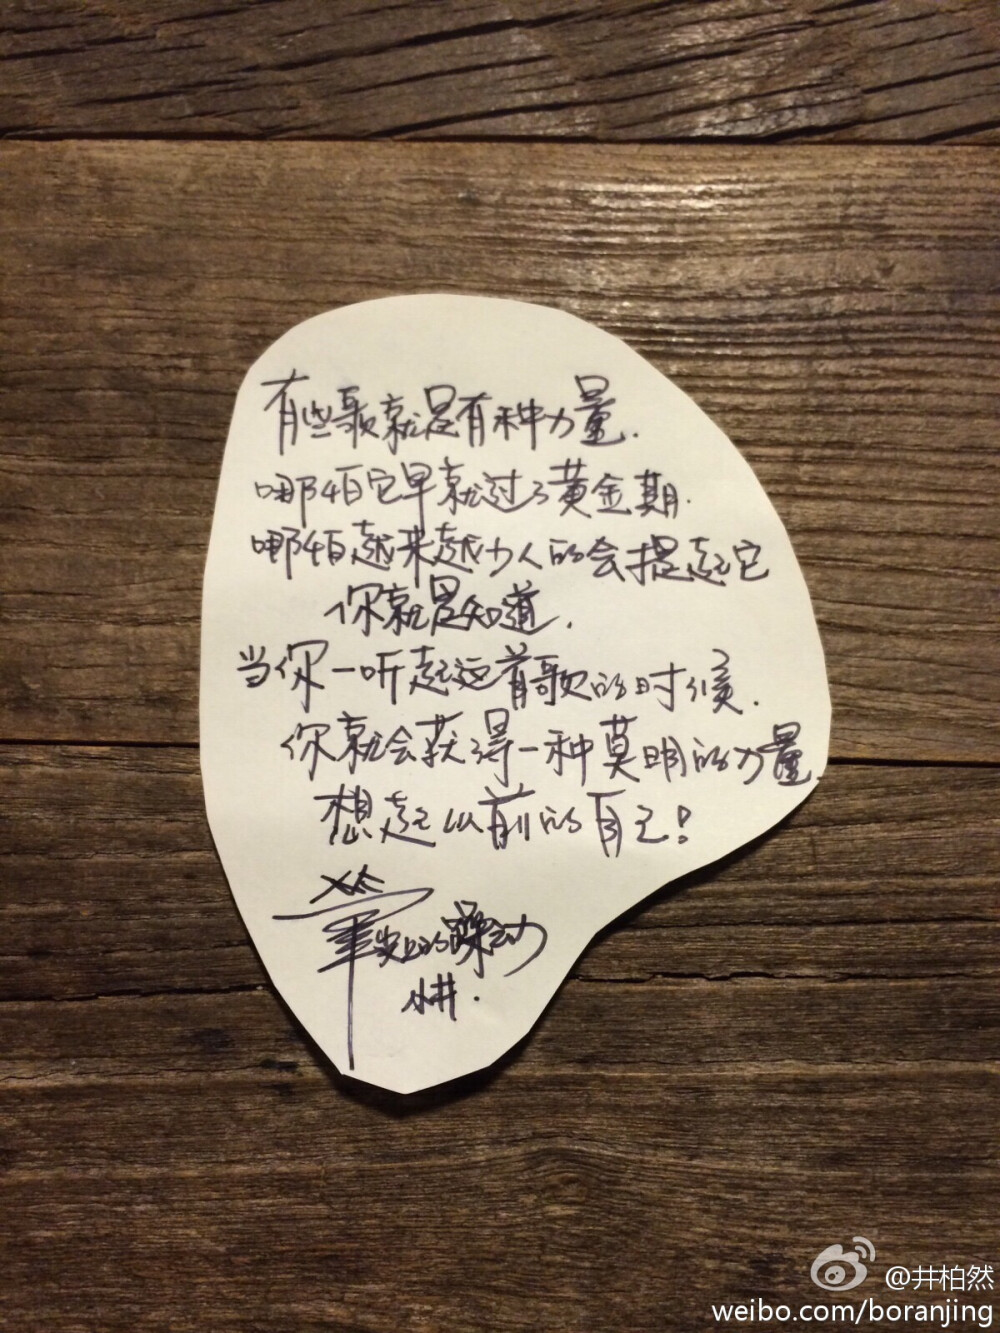 有些歌就是有种力量.
哪怕它早就过了黄金期.
哪怕越来越少人的会提起它
你就是知道.
当你一听起这首歌的时候.
你就会获得一种莫明的力量
想起从前的自己!
笔尖上的躁动
小井.
@井柏然
weibo.com/boranjing